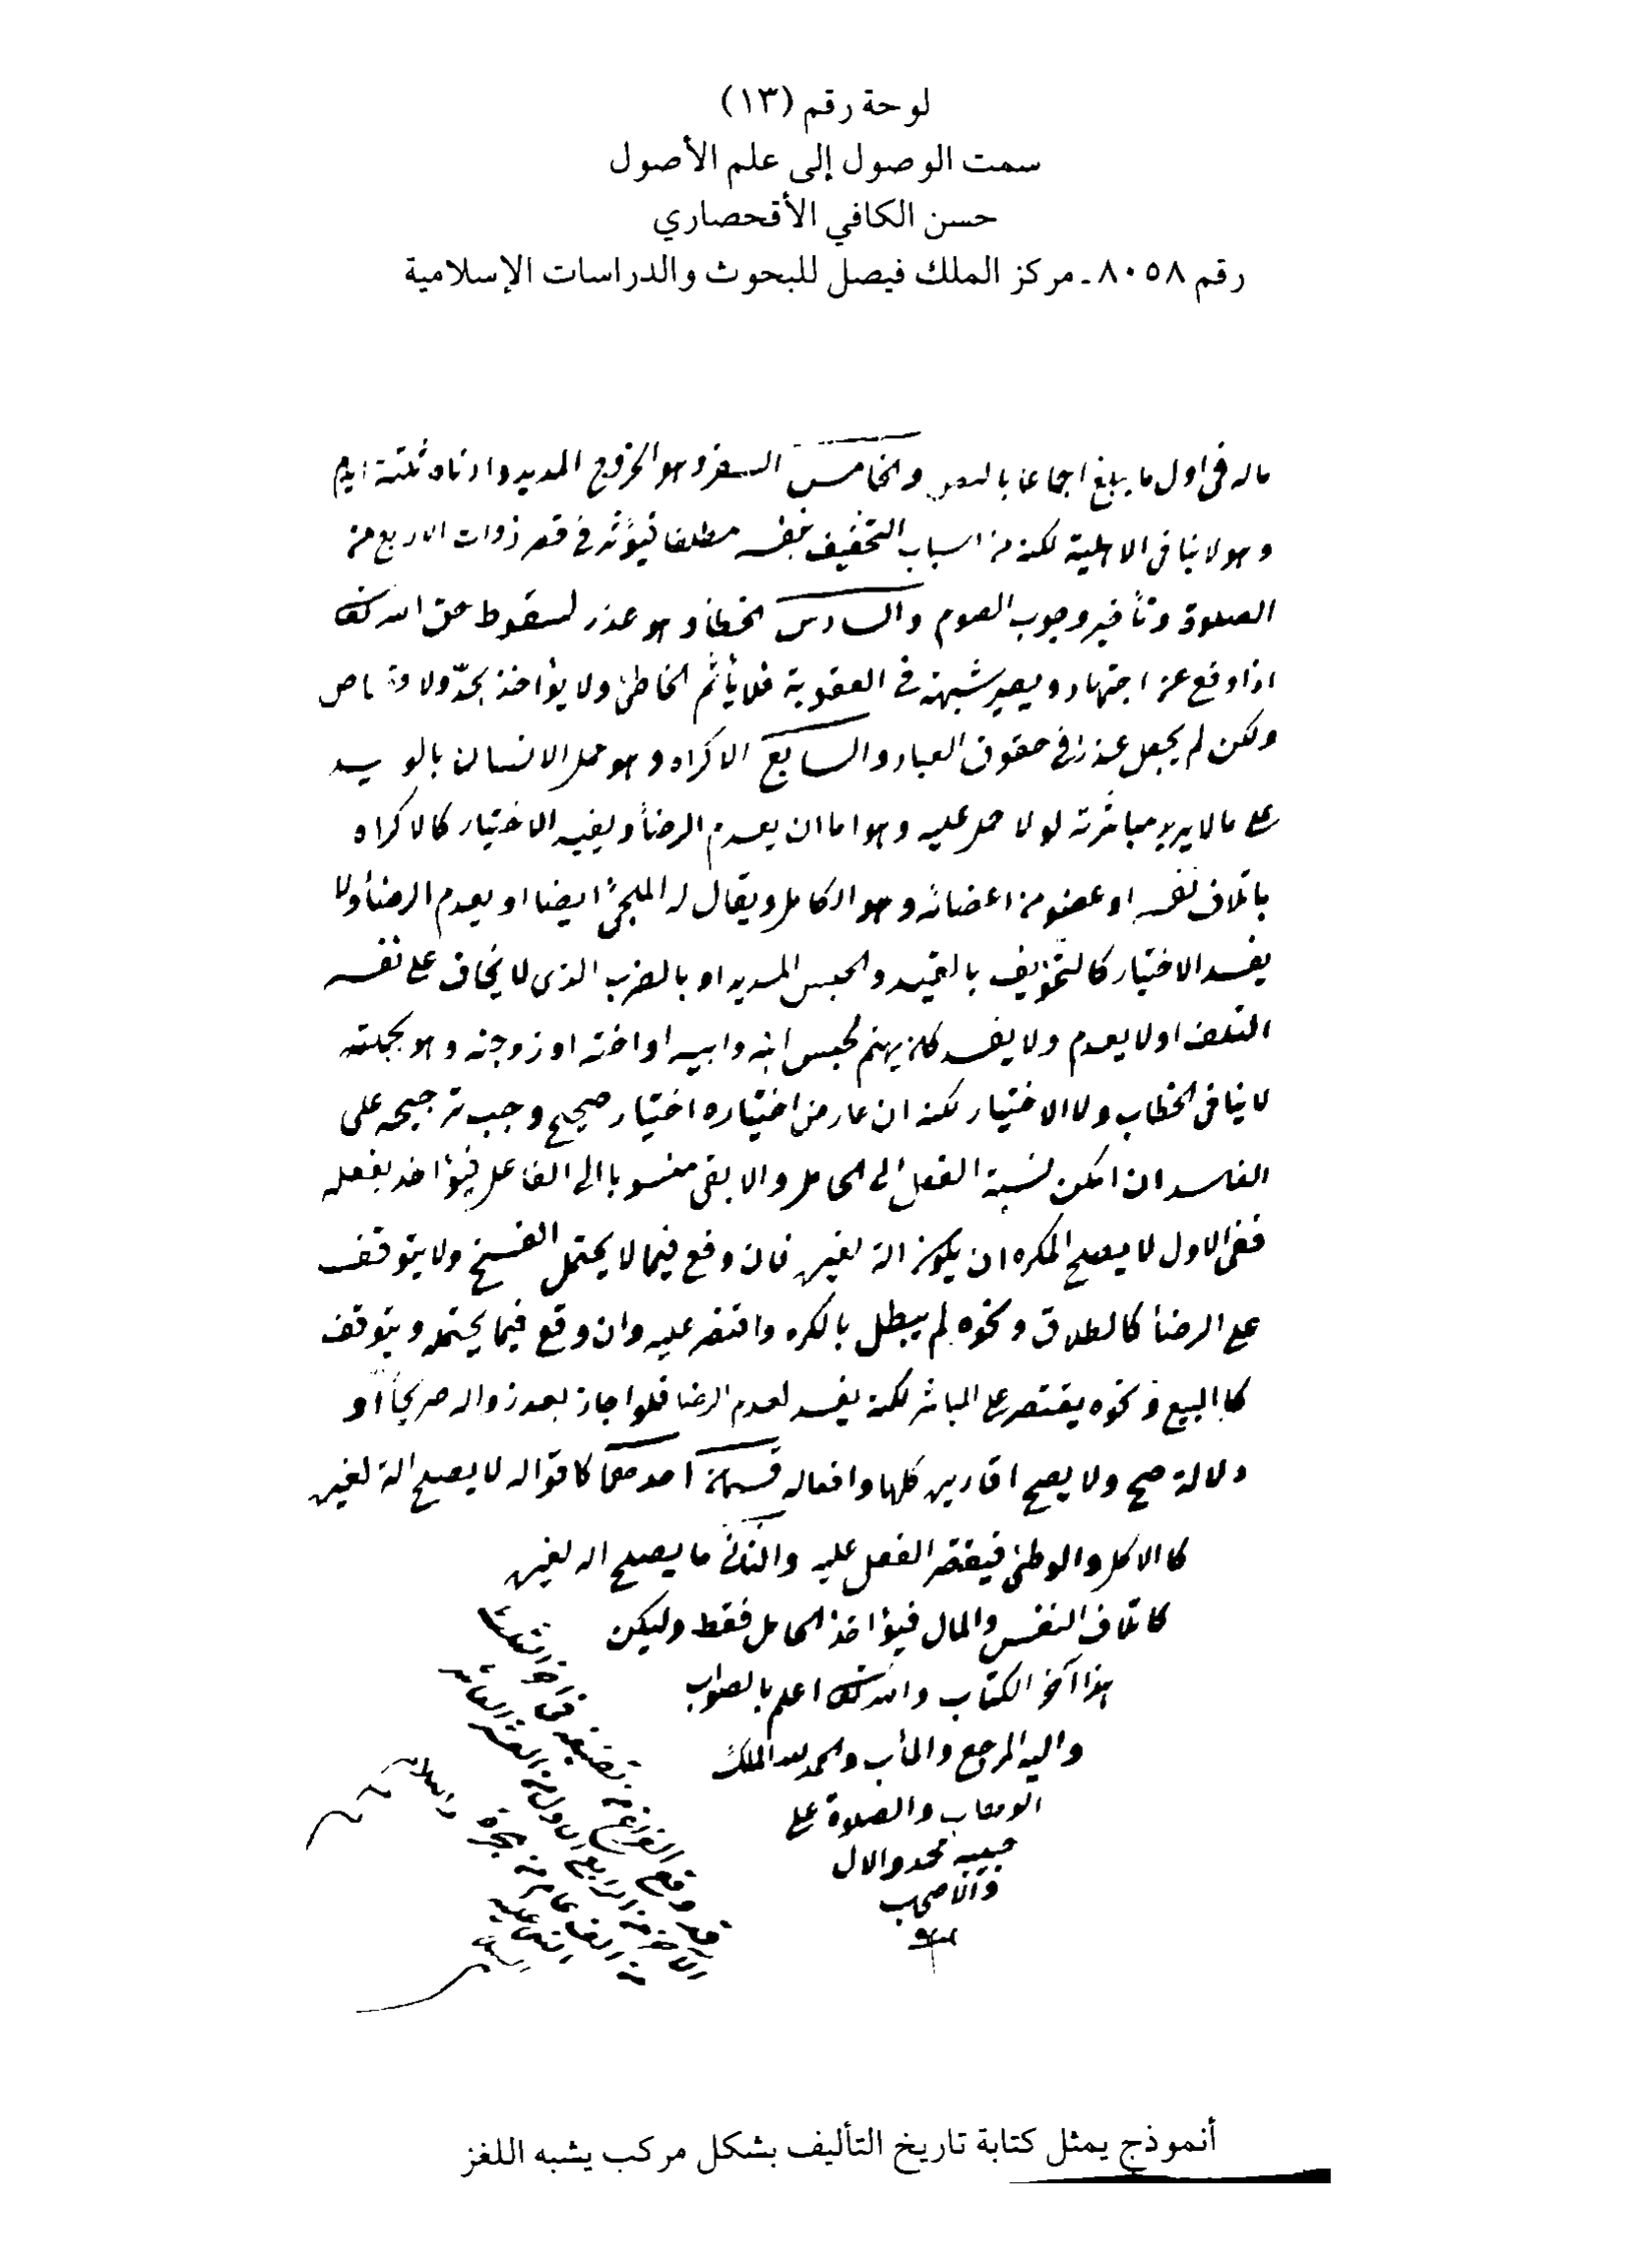 لوحة رقم (١٣)
سمت الوصول إلى علم الأصول
حسن الكافي الأقحصاري
رقم ٨٠٥٨ ـ مركز الملك فيصل للبحوث والدراسات الإسلامية
ماله فى اول ما يبلغ اجماعا بالنص والخامس السفر وهو الخروج المديد وادناه ثلثة ايام
وهو لا ينافى الاهلية لكنه من اسباب التخفيف بنفسه مطلقا فيؤثر فى قصر ذوات الاربع من
الصلوة وتأخير وجوب الصوم والسادس الخطأ وهو عذر لسقوط حق الله تعالى
اذا وقع عن اجتهاد ويصير شبهة فى العقوبة فلا يأثم الخاطئ ولا يؤاخذ بحدّ ولا قصاص
ولكن لم يجعل عذرا فى حقوق العباد والسابع الاكراه وهو حمل الانسان بالوعيد
على ما لا يريد مباشرته لولا حمل عليه وهو اما ان يعدم الرضأ ويفسد الاختيار كالاكراه
باتلاف نفسه او عضو من اعضائه وهو الكامل ويقال له الملجئ ايضا او يعدم الرضأ ولا
يفسد الاختيار كالتخويف بالقيد والحبس المديد او بالضرب الذى لا يخاف على نفسه
التلف او لا يعدم ولا يفسد كان يهتم لحبس ابنه وابيه او اخته او زوجته وهو بجملته
لا ينافى الخطاب ولا الاختيار لكنه ان عارض اختياره اختيار صحيح وجب ترجيحه على
الفاسد ان امكن نسبة الفعل الى الحامل والا بقى منسوبا الى الفاعل فيؤاخذ بفعله
ففى الاول لا يصلح المكره ان يكون الة لغيره فان وقع فيما لا يحتمل الفسخ ولا يتوقف
على الرضأ كالطلاق ونحوه لم يبطل بالكره واقتصر عليه وان وقع فيما يحتمله ويتوقف
كالبيع ونحوه يقتصر على المباشر لكنه يفسد لعدم الرضا فلو اجاز بعد زواله صريحاً او
دلالة صح ولا يصح اقاريره كلها وافعاله قسمان احدهما كاقواله لا يصلح الة لغيره
كالاكل والوطئ فيقتصر الفعل عليه والثانى ما يصلح اله لغيره
كاتلاف النفس والمال فيؤاخذ الحامل فقط وليكن
هذا آخر الكتاب والله تعالى اعلم بالصواب
واليه المرجع والمأب والحمد لله الملك
الوهاب والصلوة على
حبيبه محمد والال
والاصحاب
أنموذج يمثل كتابة تاريخ التأليف بشكل مركب يشبه اللغز